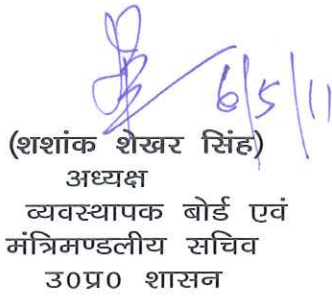 6/5/11
(शशांक शेखर सिंह)
अध्यक्ष
व्यवस्थापक बोर्ड एवं
मंत्रिमण्डलीय सचिव
उ०प्र० शासन